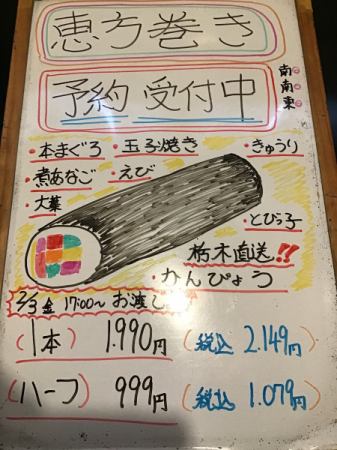 恵方巻き
予約 受付中
南南東
・本まぐろ ・玉子焼き ・きゅうり
・煮あなご ・えび
・大葉 ・とびっ子
栃木直送!!
・かんぴょう
2/3 金 17:00〜 お渡し
(1本) 1.990円 (税込 2.149円)
(ハーフ) 999円 (税込 1.079円)